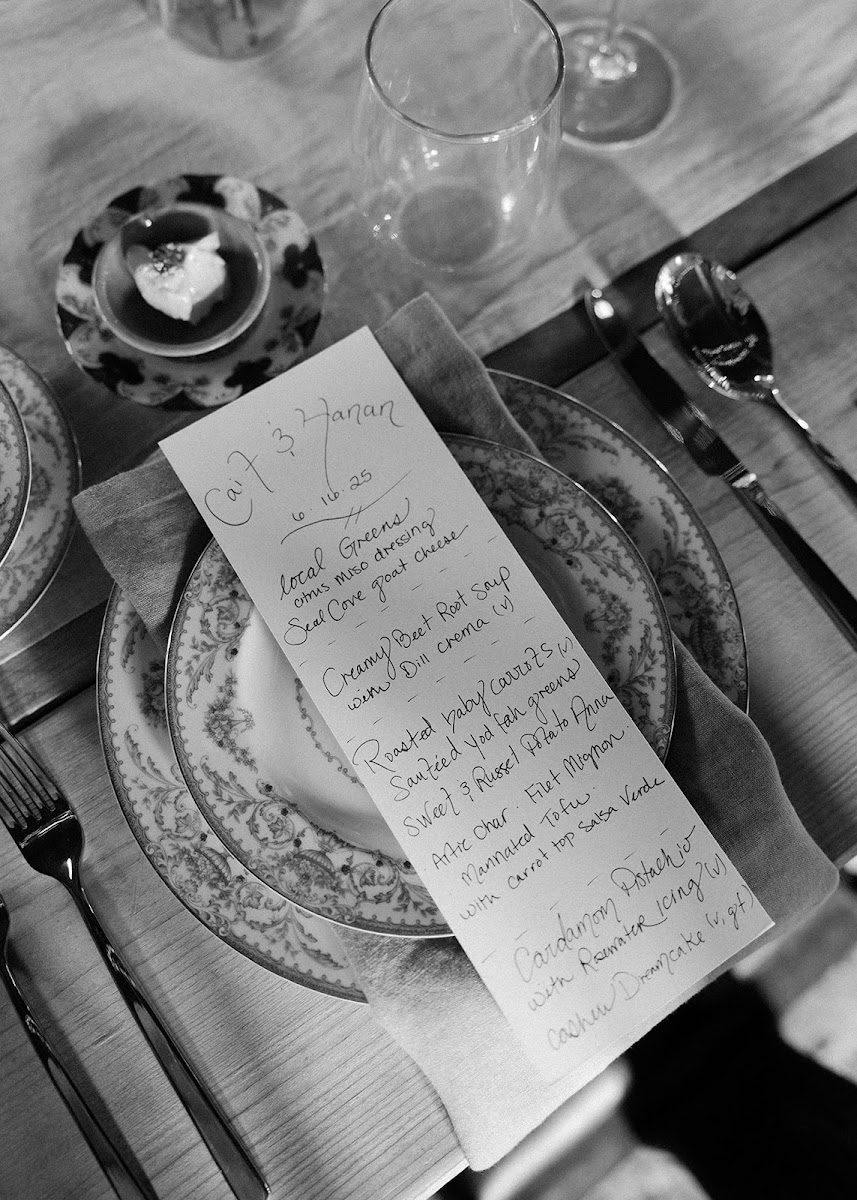 Cait & Hanan
6.16.25
local Greens
citrus miso dressing
Seal Cove goat cheese
Creamy Beet Root Soup
with Dill crema (v)
Roasted baby carrots (v)
Sautéed Yod fah greens
Sweet & Russel Potato Anna
Artic Char . Filet Mignon .
Marinated Tofu .
with carrot top salsa verde
Cardamom Pistachio
with Rosewater Icing (v)
Cashew Dreamcake (v, gf)